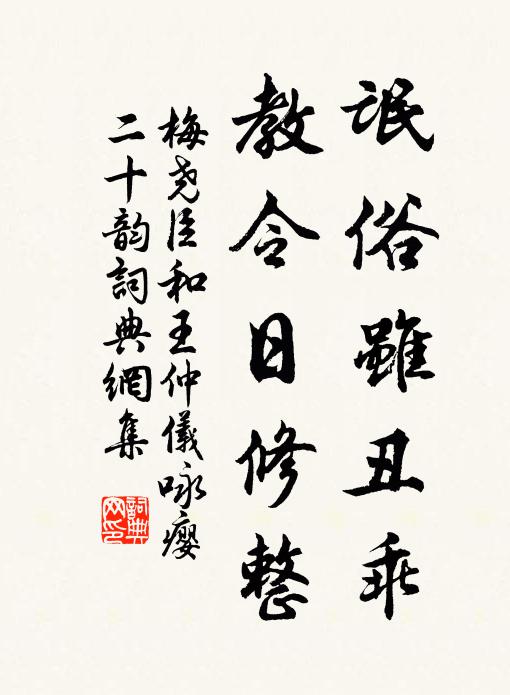 氓俗雖丑乖
教令日修整
梅尧臣和王仲儀咏癭
二十韵詞典網集
詞典網印